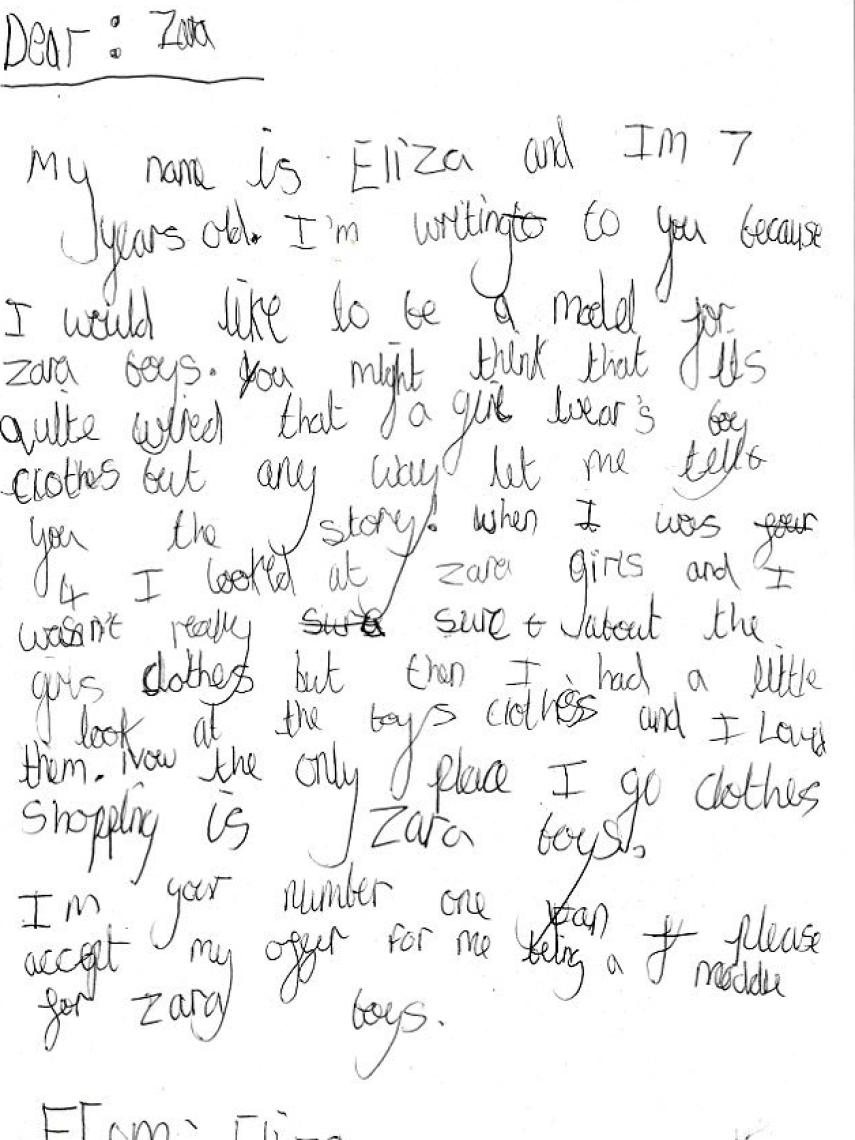 Dear : Zara
My name is Eliza and Im 7
years old. I'm writing to to you because
I would like to be a model for
zara boys. You might think that its
quite wired that a girl wear's boy
clothes but any way let me tell
you the story! when I was four
4 I looked at zara girls and I
wasn't really sure sure t about the
girls clothes but then I had a little
look at the boys clothes and I Loved
them. Now the only place I go clothes
shopping is Zara boys.
Im your number one fan
accept my offer for me being a f please
moddle
for zara boys.
From: Eliza